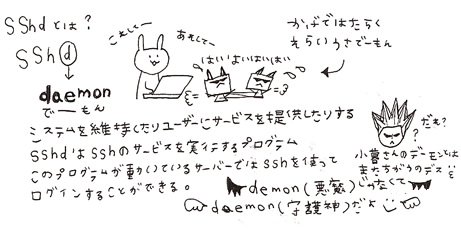 SShdとは?
SShd
daemon
でーもん
これしてー
あれしてー
はいはいはいはい
かげではたらく
えらいうさでーもん
システムを維持したりユーザーにサービスを提供したりする
sshdはsshのサービスを実行するプログラム
このプログラムが動いているサーバーではsshを使って
ログインすることができる。
demon(悪魔)じゃなくて
daemon(守護神)だよ
だれ?
小暮さんのデーモンとは
またちがうのデス